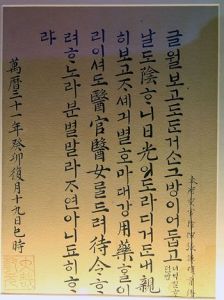 글월보고도든거슨그방이어둡고
날도陰ᄒᆞ니日光이도라디거든내親
히보고ᄌᆞ셰긔별호마대강用藥ᄒᆞᆯ이
리이셔도醫官醫女ᄅᆞᆯ드려待令ᄒᆞ
려ᄒᆞ노라분별말라ᄌᆞ연아니됴히ᄒᆞ
랴
萬曆三十一年癸卯復月十九日巳時